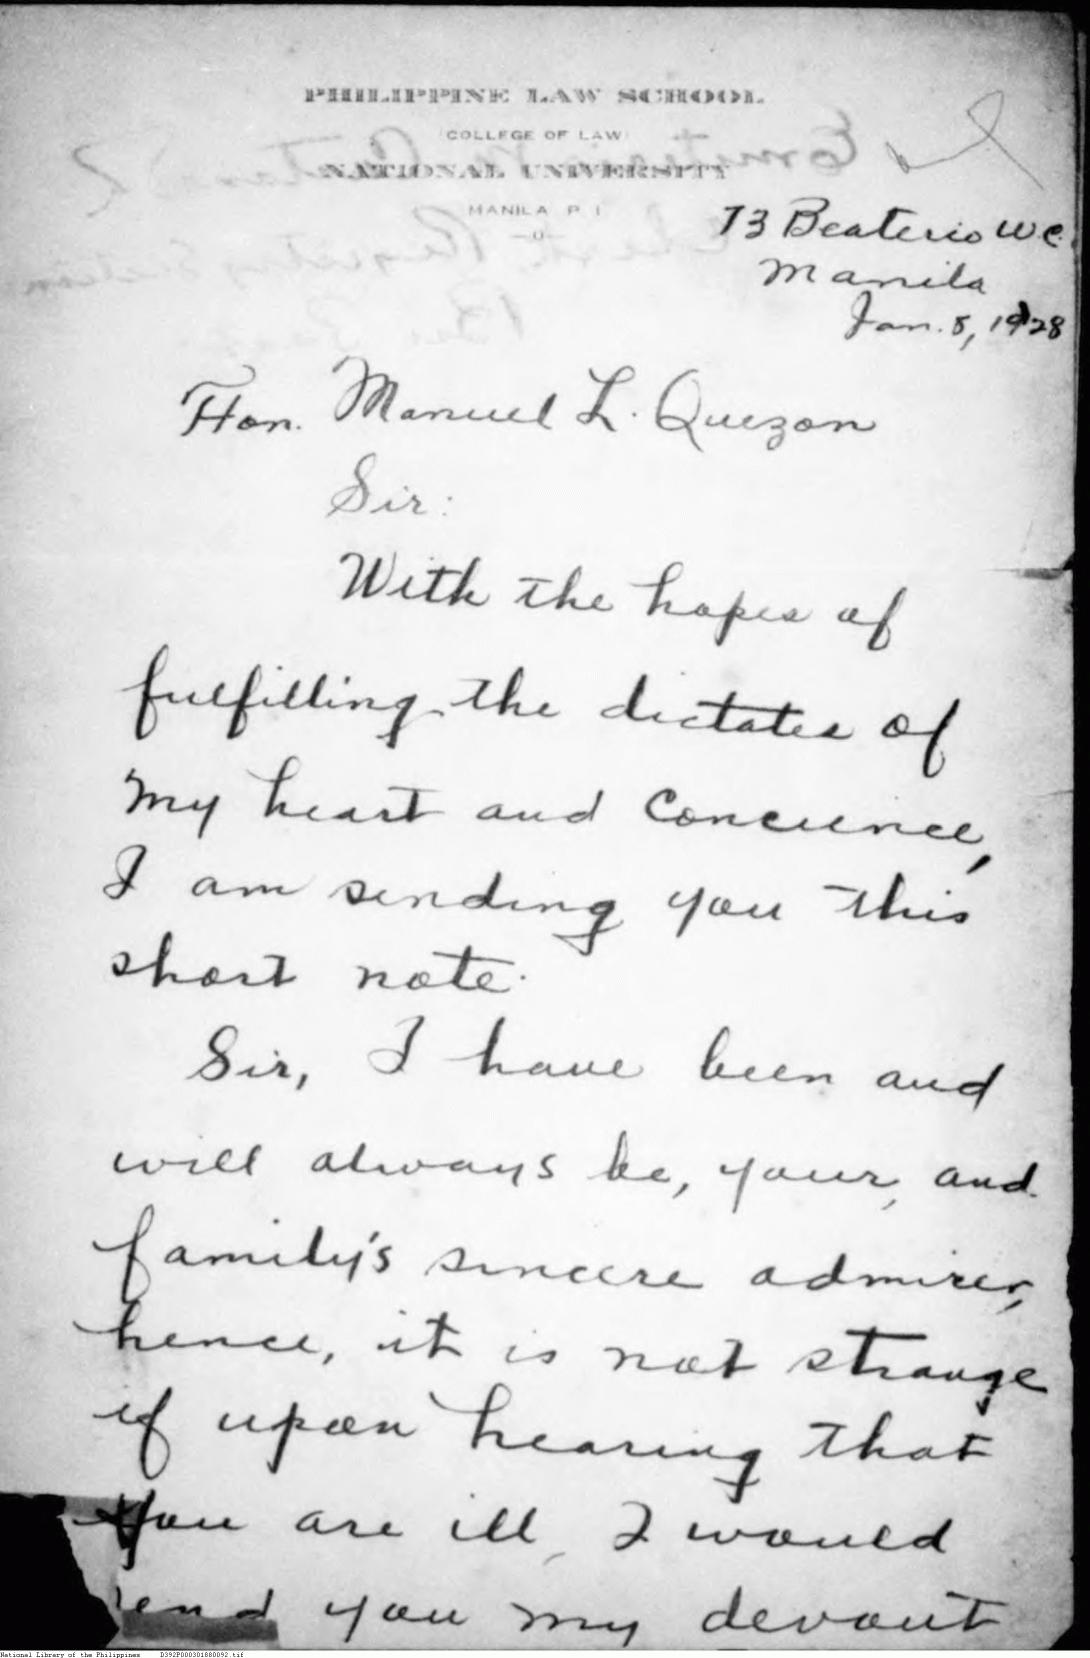 PHILIPPINE LAW SCHOOL
(COLLEGE OF LAW)
NATIONAL UNIVERSITY
MANILA P. I.
73 Beaterio W.C.
Manila
Jan. 8, 1928
Hon. Manuel L. Quezon
Sir:
With the hopes of
fulfilling the dictates of
my heart and concience,
I am sending you this
short note.
Sir, I have been and
will always be, your, and
family's sincere admirer,
hence, it is not strange
if upon hearing that
you are ill, I would
send you my devout
National Library of the Philippines D392P000301880092.tif